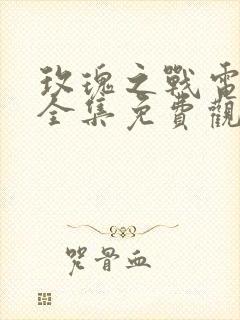 玫瑰之戰電
全集免費觀
咒骨血